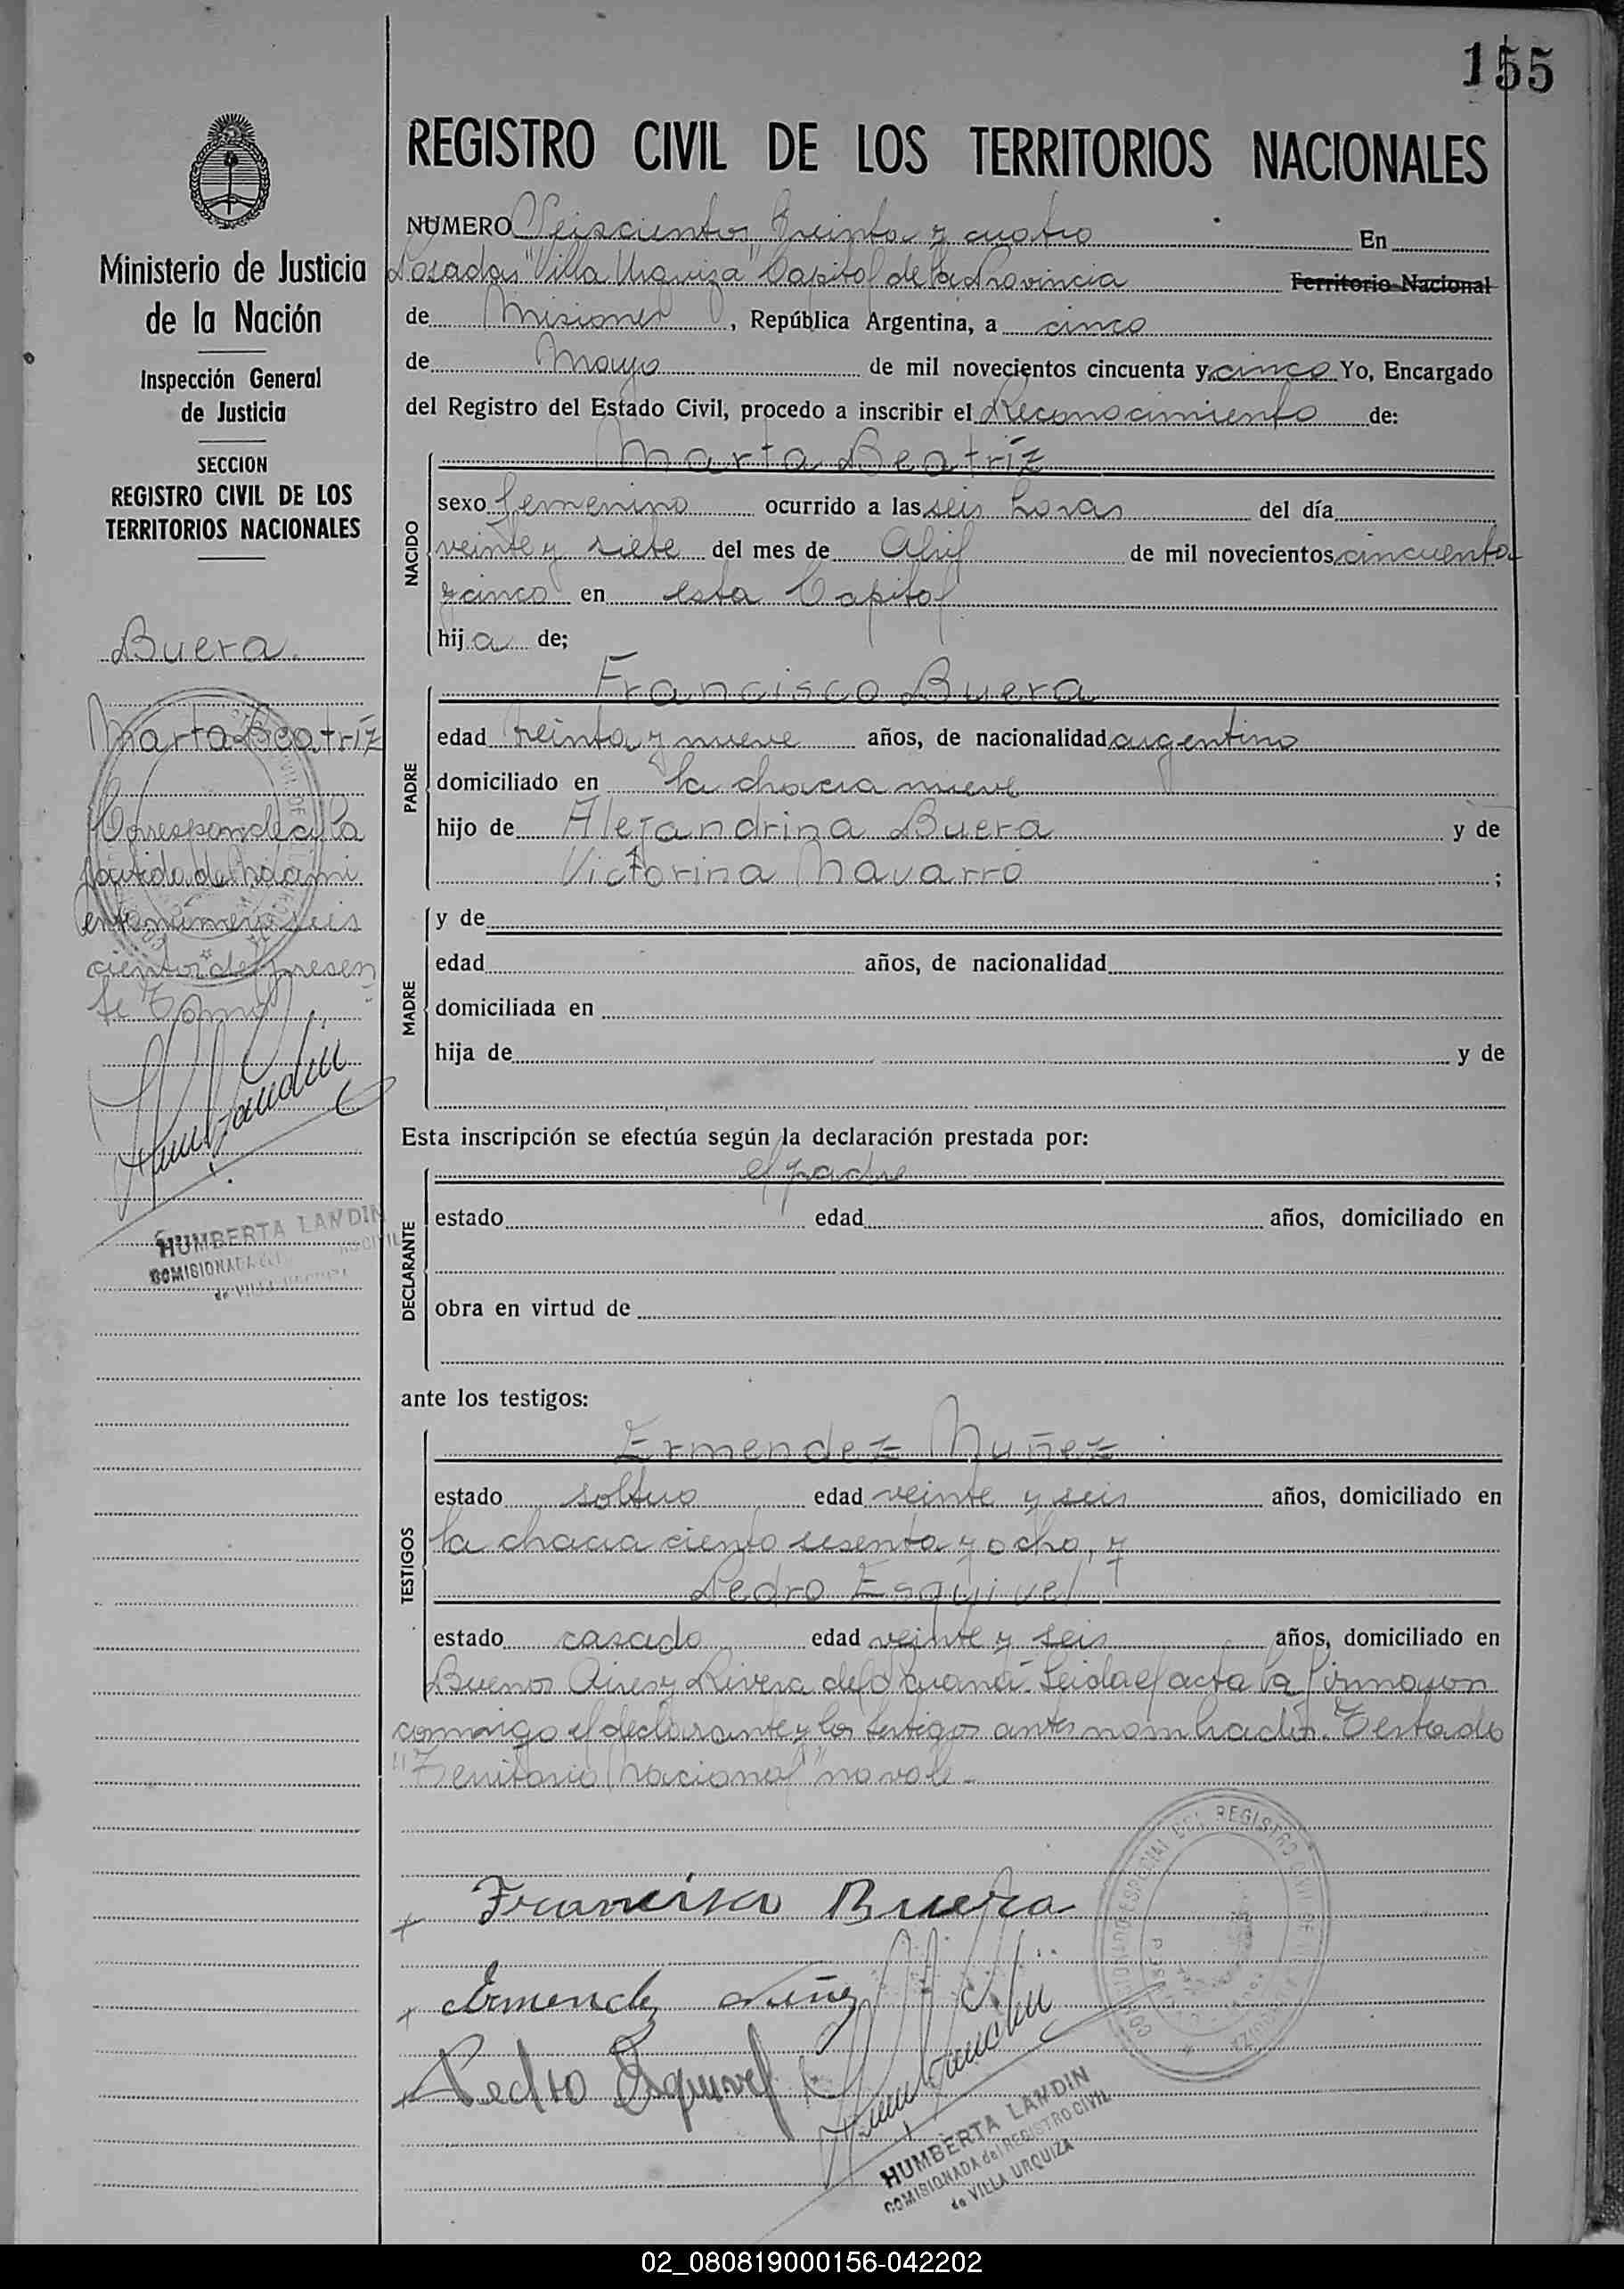 155
REGISTRO CIVIL DE LOS TERRITORIOS NACIONALES
Ministerio de Justicia
de la Nación
Inspección General
de Justicia
SECCION
REGISTRO CIVIL DE LOS
TERRITORIOS NACIONALES
Buera
Marta Beatríz
Corresponde a la
partida de Nacimi
ento número seis
cientos del presen
te Tomo
HUMBERTA LANDIN
COMISIONADA del
de VILLA URQUIZA
NUMERO Seiscientos treinta y cuatro En
Posadas "Villa Urquiza" Capital de la Provincia Territorio Nacional
de Misiones, República Argentina, a cinco
de Mayo de mil novecientos cincuenta y cinco Yo, Encargado
del Registro del Estado Civil, procedo a inscribir el Reconocimiento de:
NACIDO
Marta Beatríz
sexo femenino ocurrido a las seis horas del día
veinte y siete del mes de Abril de mil novecientos cincuenta
y cinco en esta Capital
hija de;
PADRE
Francisco Buera
edad treinta y nueve años, de nacionalidad argentino
domiciliado en la chacra nueve
hijo de Alejandrina Buera y de
Victorina Navarro ;
MADRE
y de
edad años, de nacionalidad
domiciliada en
hija de y de
Esta inscripción se efectúa según la declaración prestada por:
DECLARANTE
el padre
estado edad años, domiciliado en
obra en virtud de
ante los testigos:
TESTIGOS
Ermendez Nuñez
estado soltero edad veinte y seis años, domiciliado en
la chacra ciento sesenta y ocho, y
Pedro Esquivel
estado casado edad veinte y seis años, domiciliado en
Buenos Aires y Rivera del Paraná. Leida el acta la firmaron
conmigo el declarante y los testigos antes nombrados. Testado
"Territorio Nacional" no vale.-
Francisco Buera
Ermendez Nuñez
Pedro Esquivel
HUMBERTA LANDIN
COMISIONADA del REGISTRO CIVIL
de VILLA URQUIZA
02_080819000156-042202